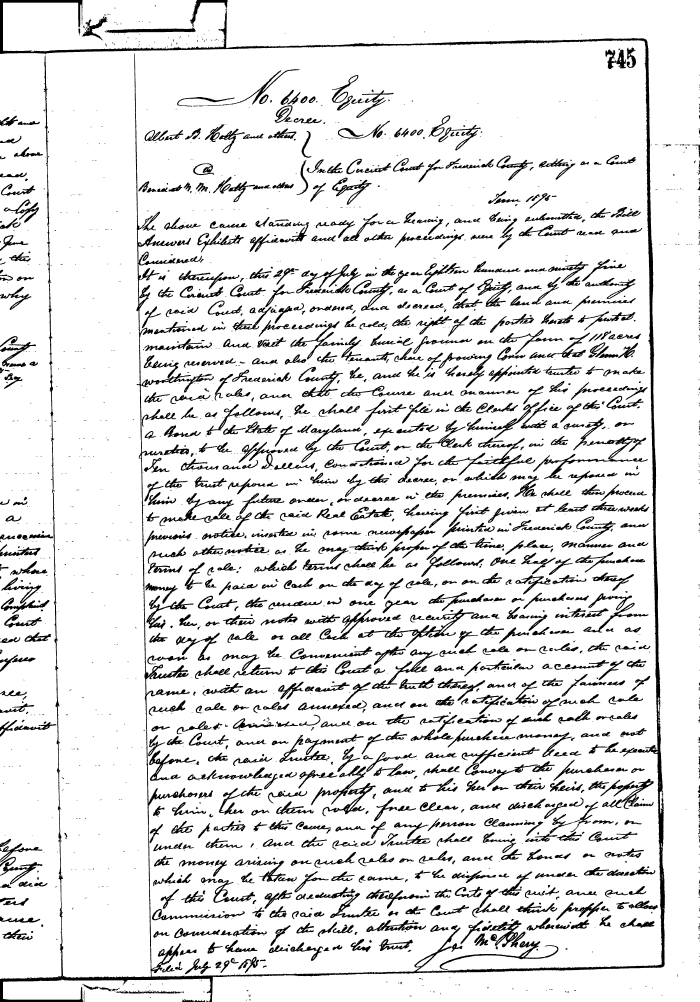 745
No. 6400. Equity.
Decree.
Albert B. Hotty and others. No. 6400. Equity.
@ In the Circuit Court for Frederick County, sitting as a Court
N. M. Hotty and others of Equity.
Term 1895
The above cause standing ready for a hearing, and being submitted, the Bill
Answers Exhibits affidavits and all other proceedings were by the Court read and
Considered.
It is thereupon, this 29th day of July in the year Eighteen hundred and ninety five
by the Circuit Court for Frederick County, as a Court of Equity, and by the authority
of said Court, adjudged, ordered, and decreed, that the land and premises
mentioned in these proceedings be sold, the right of the parties hereto to
maintain and the family burial ground on the farm of 118 acres
being reserved - and also the tenants share of growing Corn and that Glenn H.
Worthington of Frederick County, be, and he is hereby appointed trustee to make
the said sales, and that the Course and manner of his proceedings
shall be as follows, he shall first file in the Clerks office of this Court,
a Bond to the State of Maryland, executed by himself with a surety, or
sureties, to be approved by the Court, or the Clerk thereof, in the penalty of
Ten thousand Dollars, Conditioned for the faithful performance
of the trust reposed in him by this decree, or which may be reposed in
him by any future order, or decree in the premises, He shall then proceed
to make sale of the said Real Estate, having first given at least three weeks
previous notice, inserted in some newspaper printed in Frederick County, and
such other notice as he may think proper of the time, place, manner and
terms of sale: which terms shall be as follows, One half of the purchase
money to be paid in Cash on the day of sale, or on the ratification thereof
by the Court, the residue in one year the purchaser or purchasers giving
his, her, or their notes with approved security and bearing interest from
the day of sale or all Cash at the option of the purchaser and as
soon as may be Convenient after any such sale or sales, the said
Trustee shall return to this Court a full and particular account of the
same, with an affidavit of the truth thereof, and of the fairness of
such sale or sales annexed; and on the ratification of such sale
or sales and on the ratification of such sale or sales
by the Court, and on payment of the whole purchase money, and not
before, the said Trustee, by a good and sufficient deed to be executed
and acknowledged agreeably to law, shall Convey to the purchaser or
purchasers of the said property, and to his her or their heirs, the property
to him, her or them sold, free Clear, and discharged of all Claim
of the parties to this Cause, and of any person Claiming by from, or
under them, and the said Trustee shall bring into this Court
the money arising on such sales or sales, and the bonds or notes
which may be taken for the same, to be disposed of under the direction
of this Court, after deducting therefrom the Costs of this suit, and such
Commission to the said Trustee as the Court shall think propper to allow
on Consideration of the skill, attention and fidelity wherewith he shall
appear to have discharged his trust.
Filed July 29th 1895.